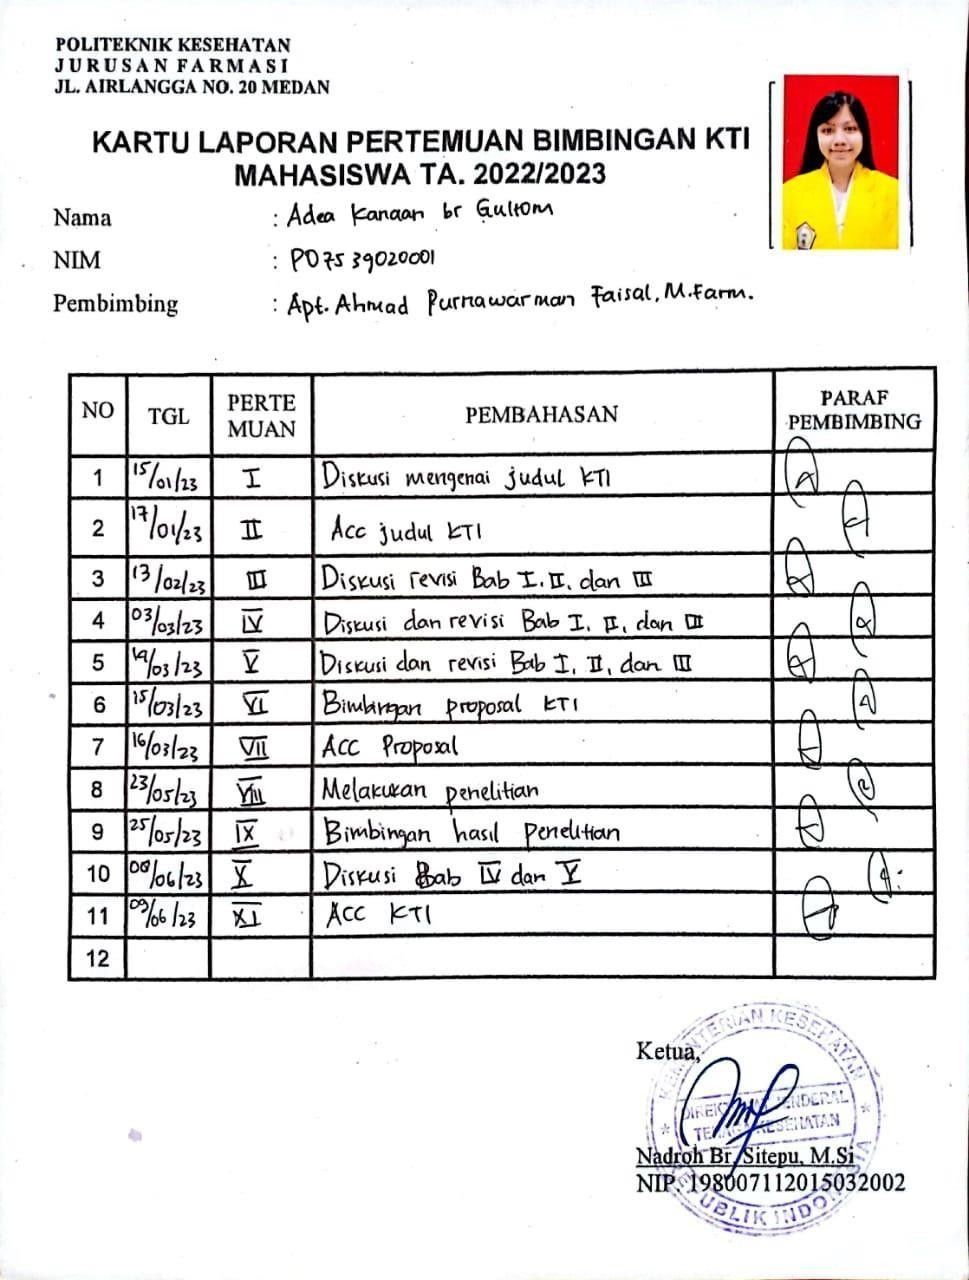 POLITEKNIK KESEHATAN
JURUSAN FARMASI
JL. AIRLANGGA NO. 20 MEDAN
KARTU LAPORAN PERTEMUAN BIMBINGAN KTI
MAHASISWA TA. 2022/2023
Nama : Adea Kanaan br Gultom
NIM : P07539020001
Pembimbing : Apt. Ahmad Purnawarman Faisal, M.Farm.
NO TGL PERTE MUAN PEMBAHASAN PARAF PEMBIMBING
1 15/01/23 I Diskusi mengenai judul KTI
2 17/01/23 II Acc judul KTI
3 13/02/23 III Diskusi revisi Bab I, II, dan III
4 03/03/23 IV Diskusi dan revisi Bab I, II, dan III
5 /03/23 V Diskusi dan revisi Bab I, II, dan III
6 15/03/23 VI Bimbingan proposal KTI
7 16/03/23 VII ACC Proposal
8 23/05/23 VIII Melakukan penelitian
9 25/05/23 IX Bimbingan hasil penelitian
10 08/06/23 X Diskusi Bab IV dan V
11 09/06/23 XI ACC KTI
12
Ketua,
KEMENTERIAN KESEHATAN
DIREKTORAT JENDERAL
TENAGA KESEHATAN
REPUBLIK INDONESIA
Nadroh Br. Sitepu, M.Si
NIP. 198007112015032002